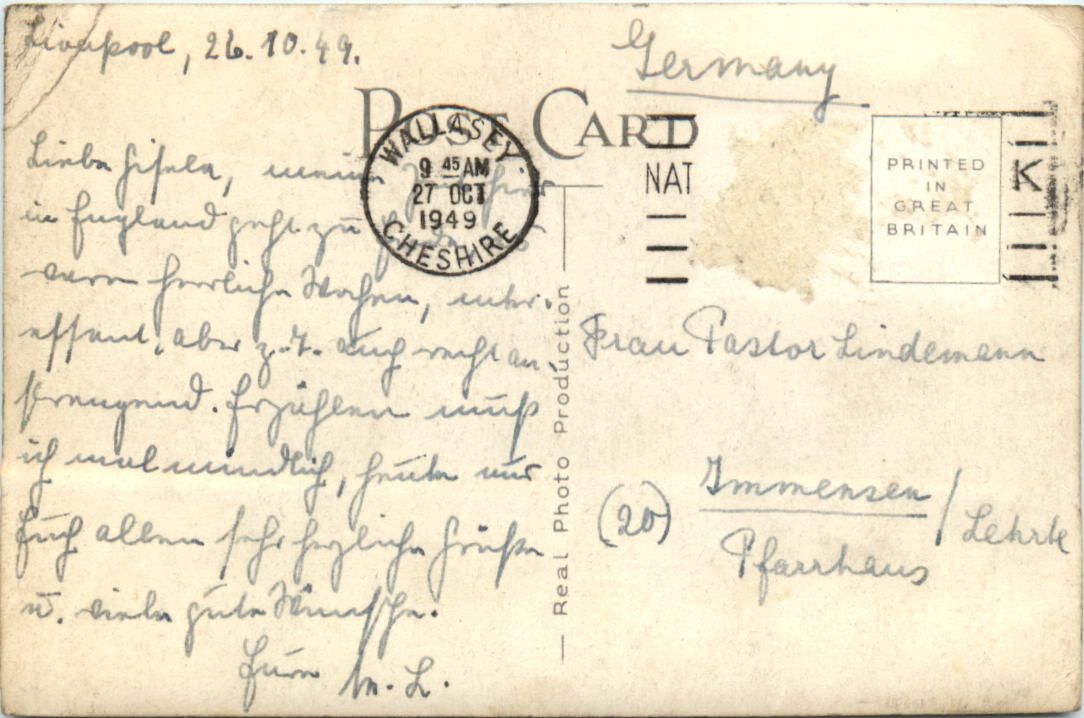 Liverpool, 26.10.49.
Germany
POST CARD
WALLASEY
9 45 AM
27 OCT
1949
CHESHIRE
NAT
PRINTED
IN
GREAT
BRITAIN
Liebe Gisela, meine Zeit hier
in England geht zu Ende. Es
waren herrliche Wochen, inter-
essant, aber z.T. auch recht an-
strengend. Erzählen muß
ich mal mündlich, heute nur
Euch allen sehr herzliche Grüße
u. viele gute Wünsche.
Eure M. L.
Real Photo Production
Frau Pastor Lindemann
(20) Immensen / Lehrte
Pfarrhaus